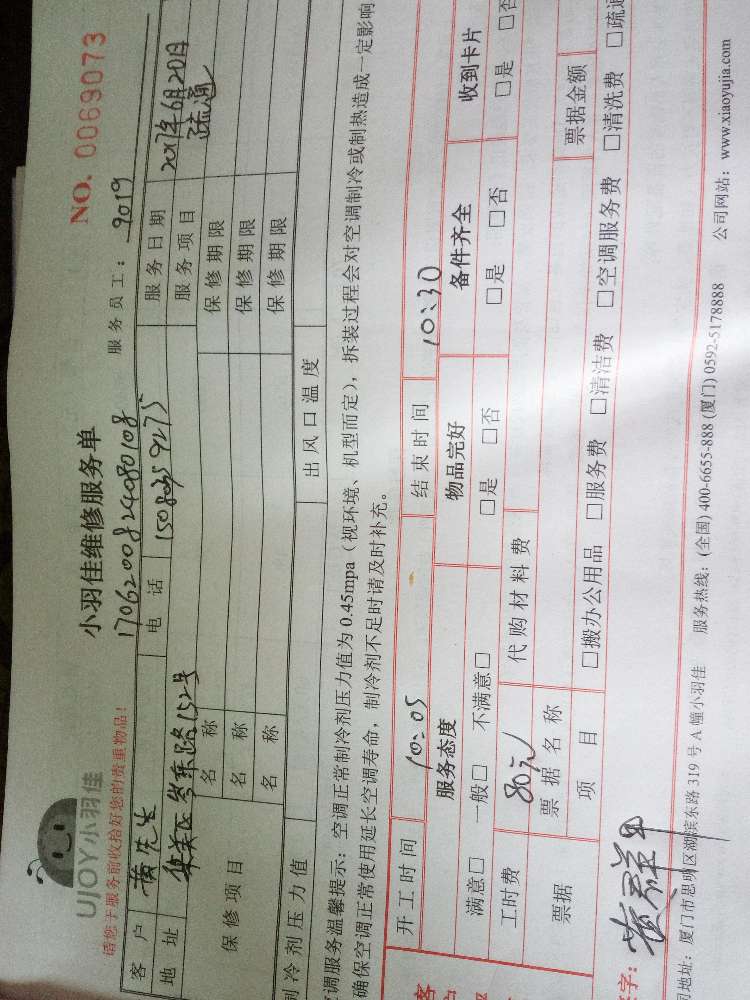 UJOY小羽佳
小羽佳维修服务单
NO. 0069073
请您于服务前收拾好您的贵重物品!
1706200824080108
服务员工: 9019
客户 黄先生 电话 15080359275 服务日期 2017年6月20日
地址 集美区岑东路152号 服务项目 疏通
保修项目 名称 保修期限
名称 保修期限
名称 保修期限
制冷剂压力值 出风口温度
调服务温馨提示: 空调正常制冷剂压力值为 0.45mpa(视环境、机型而定), 拆装过程会对空调制冷或制热造成一定影响
确保空调正常使用延长空调寿命, 制冷剂不足时请及时补充。
开工时间 10:05 结束时间 10:30
服务态度 物品完好 备件齐全 收到卡片
满意□ 一般□ 不满意□ □是 □否 □是 □否 □是 □否
工时费 80元 代购材料费
票据 票据名称 票据金额
项目 □搬办公用品 □服务费 □清洁费 □空调服务费 □清洗费 □疏通
字:
地址: 厦门市思明区湖滨东路 319 号 A 幢小羽佳 服务热线: (全国) 400-6655-888 (厦门) 0592-5178888 公司网站: www.xiaoyujia.com